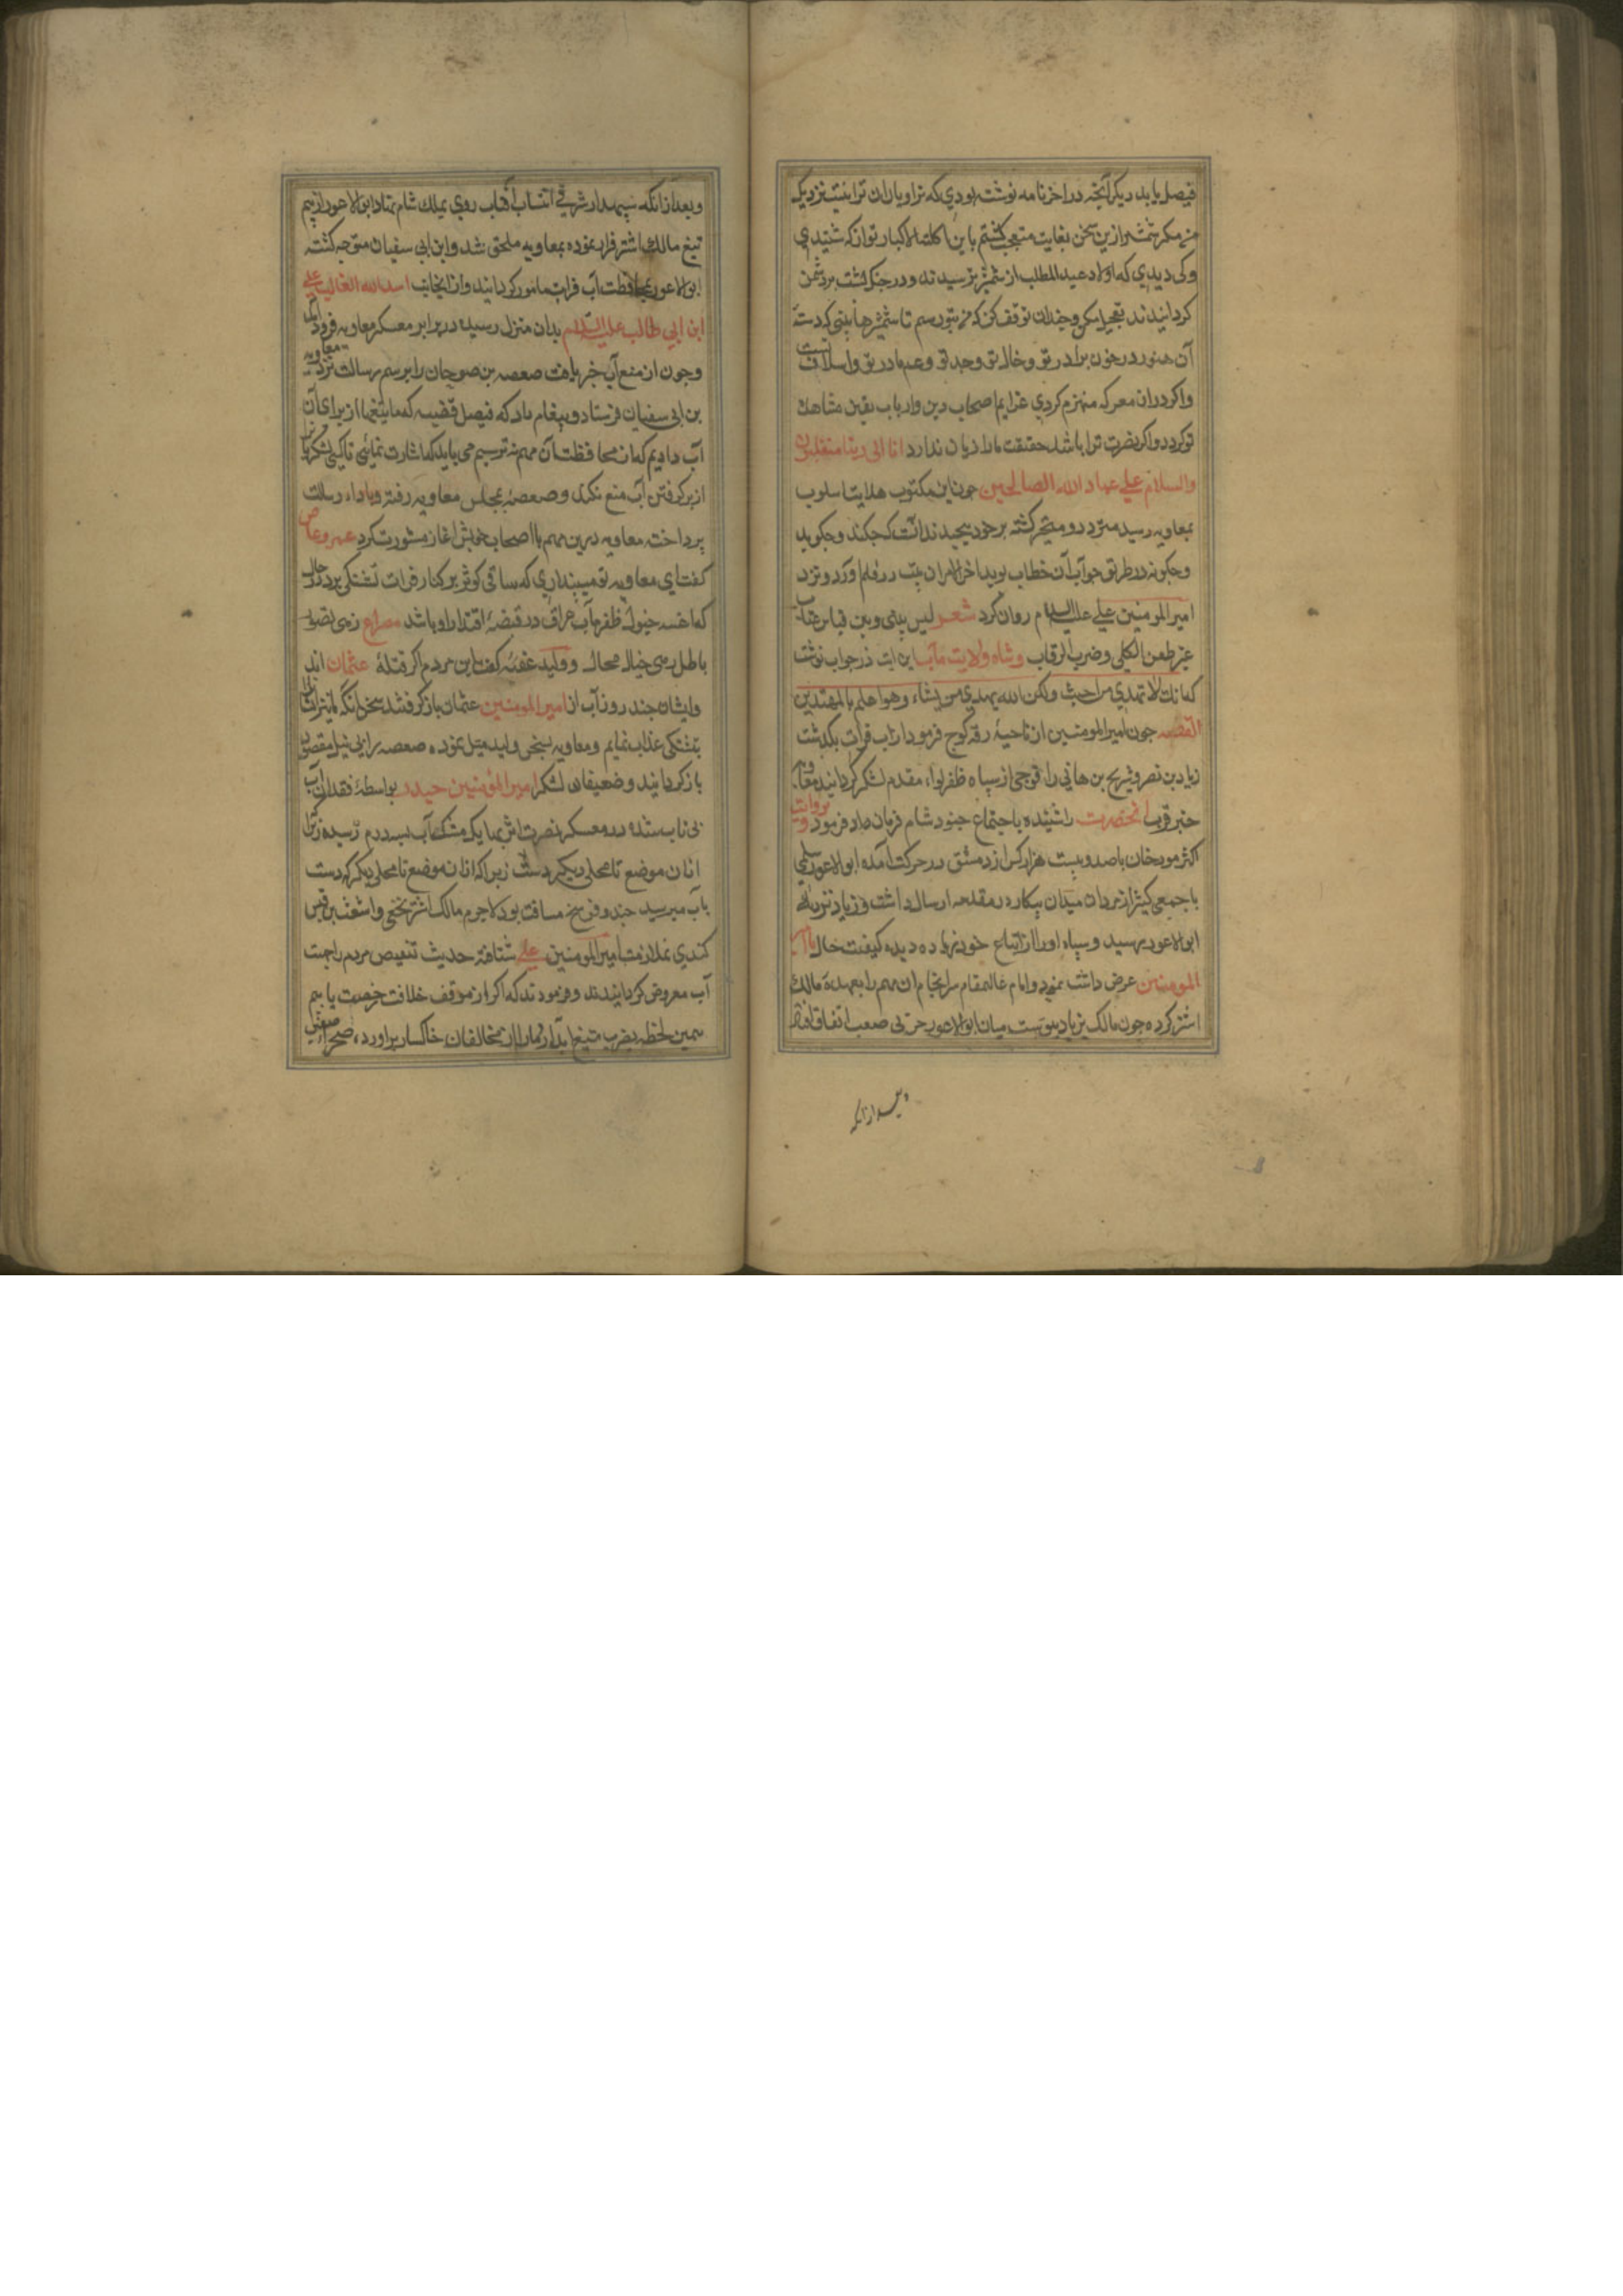 فیصل یابد دیگر آنچه در اخر نامه نوشته بودی که ترا و یاران ترا نیست نزدیک
من مکر شمشیر ازین سخن بغایت متعجب کشتم یا بن اکلة الاکباد تو از که شنیدی
و کی دیدی که اولاد عبد المطلب از شمشیر ترسیدند و در جنک پشت بر دشمن
کردانیدند تعجیل مکن و چندان توقف کن که من بتو رسم تا شمشیرها بینی که دسته
آن هنوز در خون برادر تو و خال تو و جد تو و عم مادر تو و اسلاف تست
و اکر در ان معرکه منهزم کردی غزایم اصحاب دین و ارباب یقین مشاهد
تو کردد و اکر نصرت ترا باشد حقیقت ما را زیان ندارد انا الی ربنا منقلبون
والسلام علی عباد الله الصالحین چون این مکتوب هدایت اسلوب
بمعاویه رسید متردد و متحیر کشته بر خود بپیچید ندانست که چکند و چکوید
و چکونه در طریق جواب آن خطاب پوید اخر الامر ان بیت در قلم اورد و نزد
امیر المومنین علی علیه السلام روان کرد شعر لیس بینی و بین قیس عتاب
غیر طعن الکلی و ضرب الرقاب و شاه ولایت مآب این ایت در جواب نوشت
که انک لا تهدی من احببت ولکن الله یهدی من یشاء وهو اعلم بالمهتدین
القصه چون امیر المومنین از ناحیهٔ رقه کوچ فرمود از اب فرات بکذشت
زیاد بن نصر و شریح بن هانی را با فوجی از سپاه ظفر لواء مقدم لشکر کردانید معاویه
خبر قرب انحضرت را شنیده باجتماع جنود شام فرمان داد فرمود و بروایت
اکثر مورخان با صد و بیست هزار کس از دمشق در حرکت آمده ابو الاعور سلمی
با جمعی کثیر از مردان میدان پیکار در مقدمه ارسال داشت و زیاد نزدیک
ابو الاعور رسید و سپاه او را از اتباع خود زیاده دیده کیفیت حال بامیر
المومنین عرض داشت نمود و امام عالیمقام سرانجام ان مهم را بعهدهٔ مالک
اشتر کرده چون مالک بزیاد پیوست میان ابو الاعور حربی صعب اتفاق افتاد
و بعد از انکه
و بعد از انکه سپهدار شرقی انتساب آفتاب روی بملک شام نهاد ابو الاعور از بیم
تیغ مالک اشتر فرار نموده بمعاویه ملحق شد و ابن ابی سفیان متوجه کشته
ابو الاعور بمحافظت آب فرات مامور کردانید و از انجانب اسد الله الغالب علی
ابن ابی طالب علیه السلام بدان منزل رسیده در برابر معسکر معاویه فرود آمد
و چون از منع آب خبر یافت صعصه بن صوحان را برسم رسالت نزد معاویه
بن ابی سفیان فرستاد و پیغام داد که فیصل قضیه که ما تیغها از برای آن
آب دادیم که از محافظت آن مهم نه ترسیم می باید که اشارت نمائی تا کسی لشکر ما را
از بر کرفتن آب منع نکند و صعصه بمجلس معاویه رفته و باداء رسالت
پرداخته معاویه درین مهم با اصحاب خویش اغاز مشورت کرد عمرو عاص
کفت ای معاویه تو می پنداری که ساقی کوثر بر کنار فرات تشنکی برد در حالی
که اعنه خیول ظفر مآب عراق در قبضهٔ اقتدار او باشد مصراع زهی تصور
باطل زهی خیال محال و ولید عقبه کفت این مردم اکر قتلهٔ عثمان اند
و ایشان چند روز آب از امیر المومنین عثمان باز کرفتند سخن انکه ما نیز ایشان را
بتشنکی عذاب نمایم و معاویه بسخن ولید میل نموده صعصه را بی نیل مقصود
باز کردانید و ضعیفان لشکر امیر المؤمنین حیدر بواسطهٔ فقدان آب
بی تاب شده در معسکر نصرت اثر بها یک مشک آب بسه درم رسیده زیرا
ازان موضع تا محلی دیکر دست زیرا که ازان موضع تا محلی دیکر که دست
باب میرسید چند و فرسخ مسافت بود لاجرم مالک اشتر نخعی و اشعث بن قیس
کندی بملازمت امیر المومنین علی شتافته حدیث تنغیص مردم را جهت
آب معروض کردانیدند و فرمودند که اکر از موقف خلافت رخصت یابیم
همین لحظه بضرب تیغ ابدار دمار از مخالفان خاکسار براورد، صحر صفین